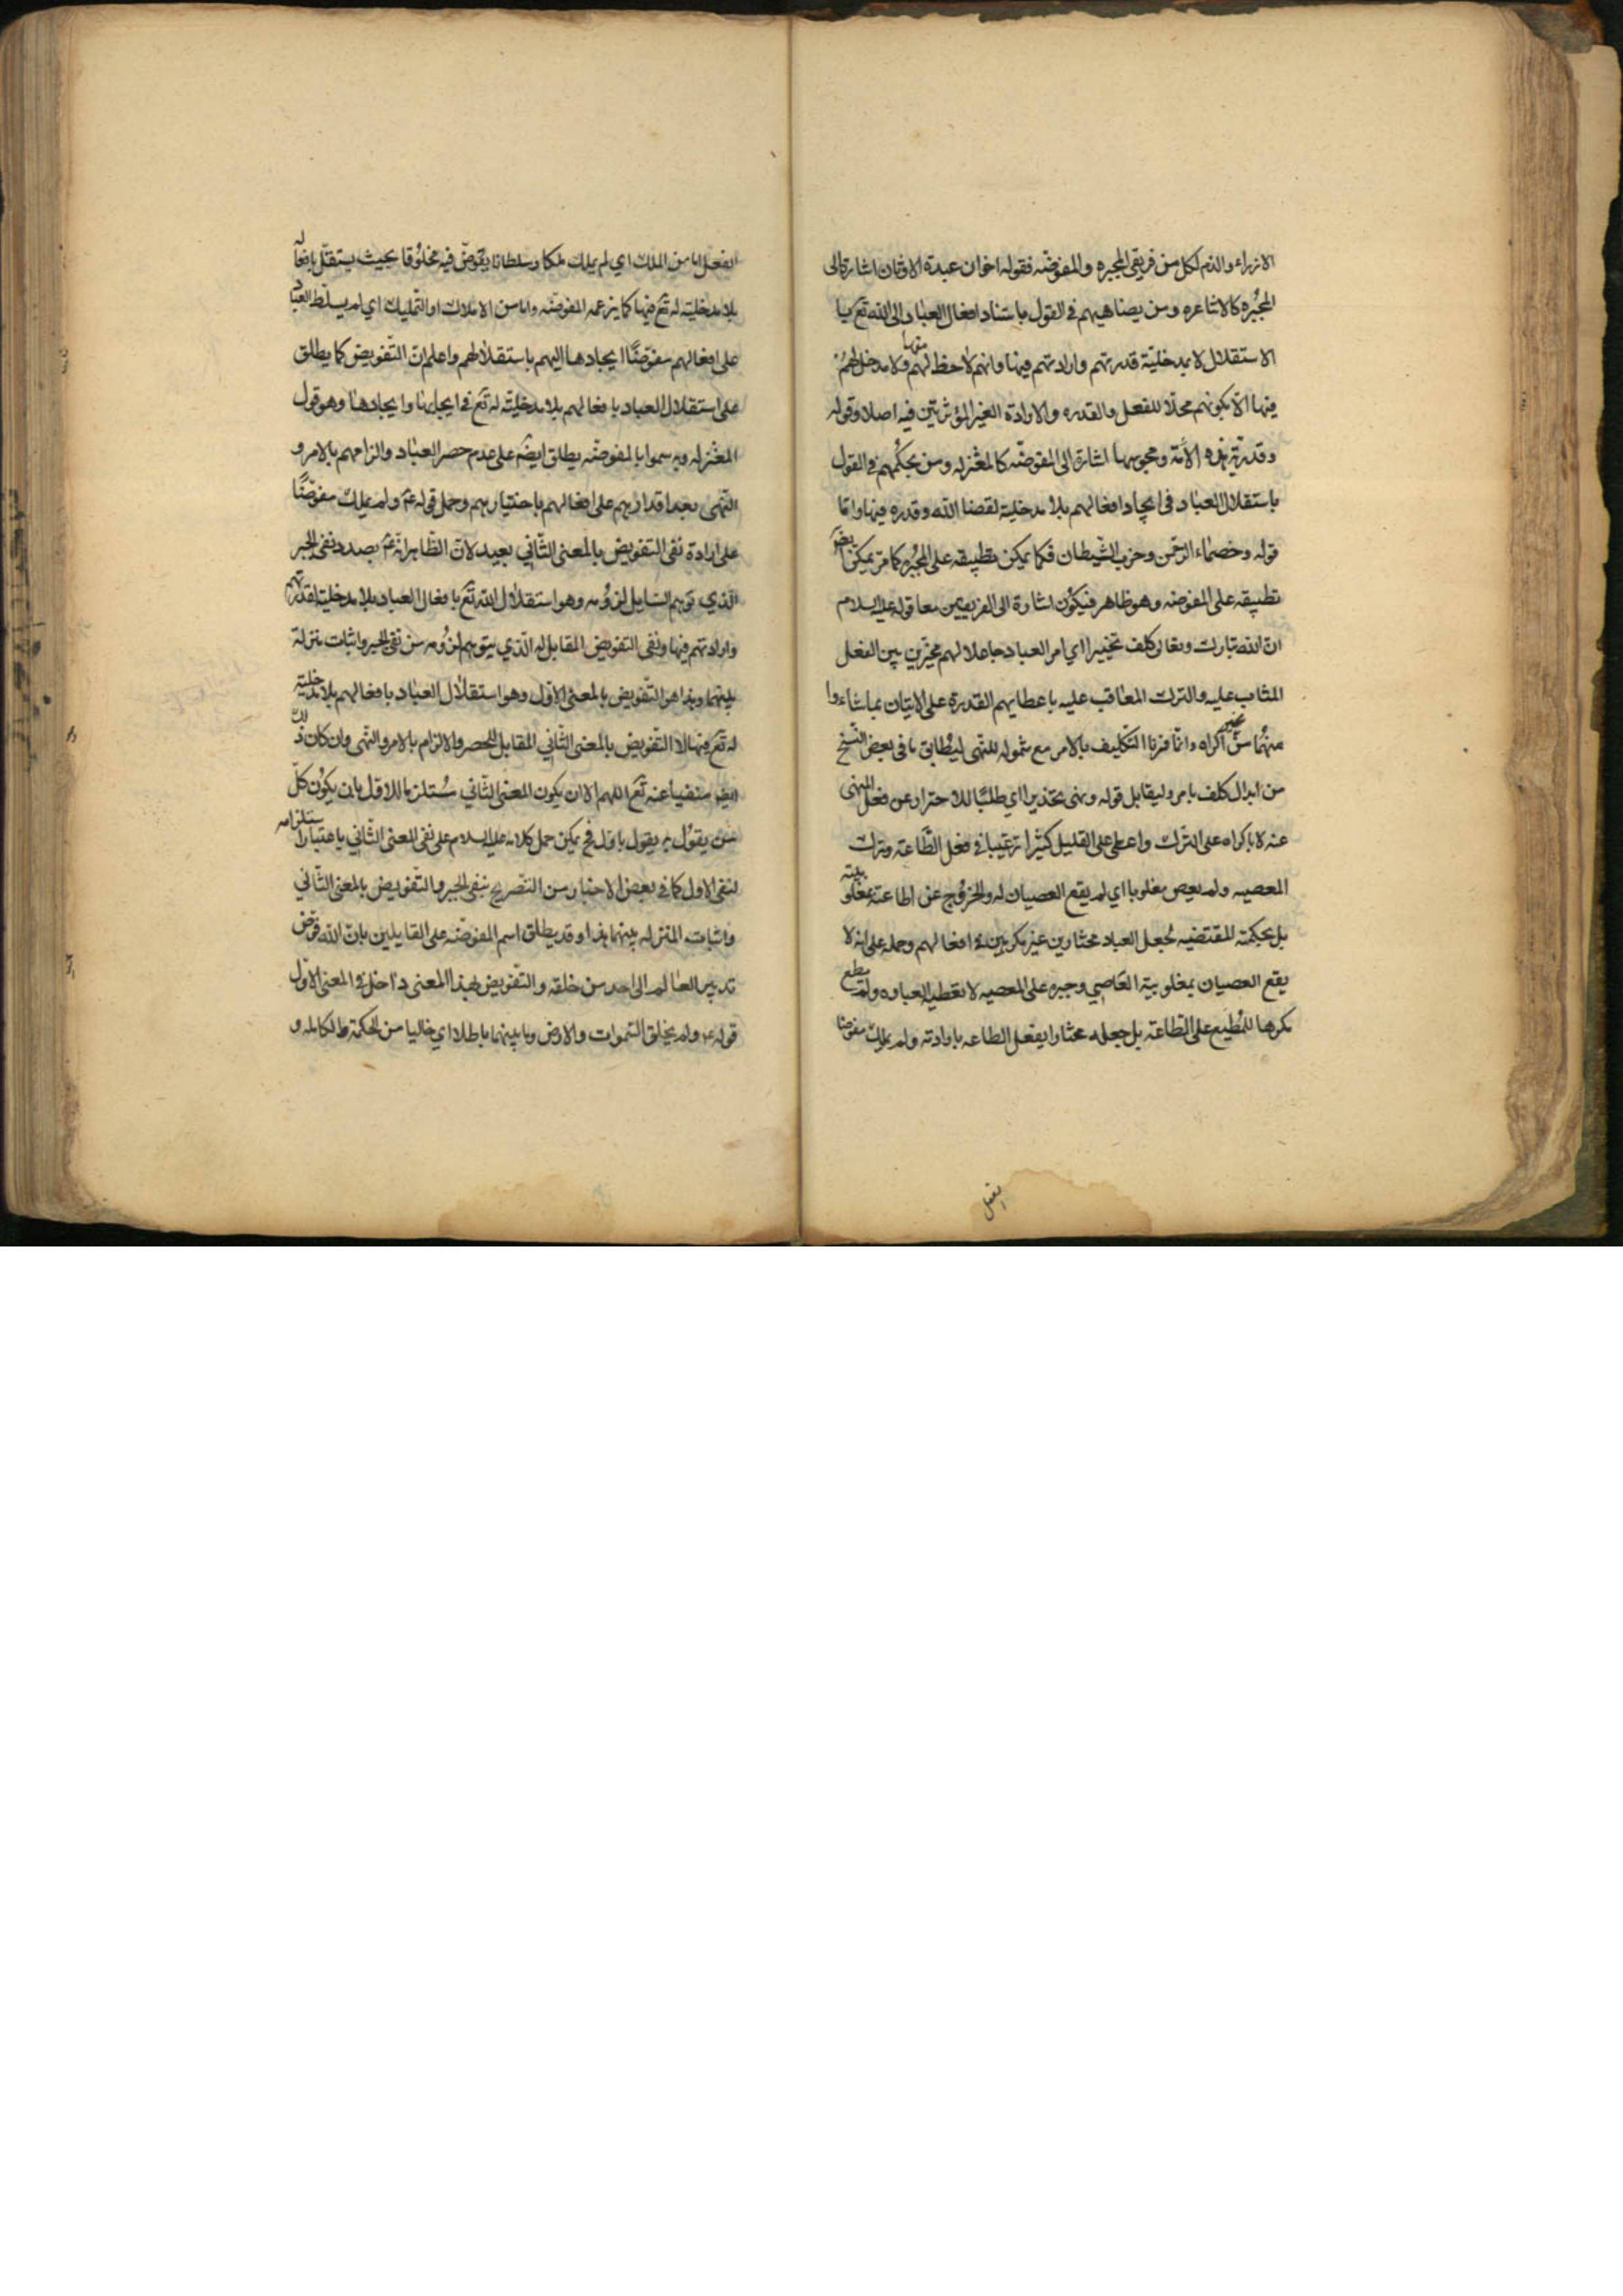 الازراء والذم لكل من فريقى المجبره والمفوضه فقوله اخوان عبدة الاوثان اشارة الى
المجبره كالاشاعره ومن يضاهيهم فى القول باستناد افعال العباد الى الله تع
الاستقلال لا بمدخلية قدرتهم وارادتهم فيها وانهم لاحظ لهم منها ولا مدخل لهم
فيها الا بكونهم محلا للفعل والقدره والارادة الغير المؤثرتين فيه اصلا وقوله
وقدرية هذه الامة ومجوسها اشارة الى المفوضه كالمعتزله ومن يحكمهم فى القول
باستقلال العباد فى ايجاد افعالهم بلا مدخلية لقضا الله وقدره فيها واما
قوله وخصماء الرحمن وحزب الشيطان فكما يمكن تطبيقه على المجبره كما مر يمكن
تطبيقه على المفوضه وهو ظاهر فيكون اشارة الى الفريقين معا قوله عليه السلام
ان الله تبارك وتعالى كلف تخييرا اي امر العباد جاعلا لهم مخيرين بين الفعل
المثاب عليه والترك المعاقب عليه باعطايهم القدرة على الاتيان بماشاءوا
منهما من غير اكراه وانما فزنا التكليف بالامر مع شموله للنهى ليطابق ما فى بعض النسخ
من ابدال كلف بامر وليقابل قوله ونهى تحذيرا اي طلبا للاحتراز عن فعل المنهى
عنه لا باكراه على الترك واعطى على القليل كثيرا ترغيبا فى فعل الطاعة وترك
المعصيه ولم يعص مغلوبا اي لم يقع العصيان له والخروج عن اطاعته بمغلوبيته
بل بحكمته المقتضيه لجعل العباد مختارين غير مكرهين فى افعالهم وحمله على انه لا
يقع العصيان بمغلوبية العاصي وجبره على المعصيه لا تعطيه العباره ولم يطع
مكرها للمطيع على الطاعة بل جعله مختارا يفعل الطاعه بارادته ولم يملك مفوضا
يفعل
الفعل اما من الملك اي لم يملك ملكا وسلطانا يفوض فيه مخلوقا بحيث يستقل بافعاله
بلا مدخلية له تع فيها كما يزعمه المفوضه واما من الاملاك او التمليك اي لم يسلط العباد
على افعالهم مفوضا ايجادها اليهم باستقلالهم واعلم ان التفويض كما يطلق
على استقلال العباد بافعالهم بلا مدخلية له تع فى ايجابها وايجادها وهو قول
المعتزله وبه سموا بالمفوضه يطلق ايضا على عدم حصر العباد والزامهم بالامر و
النهى بعد اقدارهم على افعالهم باختيارهم وحمل قوله ع ولم يملك مفوضا
على ارادة نفى التفويض بالمعنى الثاني بعيد لان الظاهر انه ع بصدد نفى الجبر
الذي توهم السايل لزومه وهو استقلال الله تع بافعال العباد بلا مدخلية لقدرتهم
وارادتهم فيها ونفى التفويض المقابل له الذي يتوهم لزومه من نفى الجبر واثبات منزلة
بينهما وهذا هو التفويض بالمعنى الاول وهو استقلال العباد بافعالهم بلا مدخلية
له تع فيها لا التفويض بالمعنى الثاني المقابل للحصر والالزام بالامر والنهى وان كان ذلك
ايضا منفيا عنه تع اللهم الا ان يكون المعنى الثاني مستلزما للاول بان يكون كل
من يقول به يقول باول فح يمكن حمل كلامه عليه السلام على نفى المعنى الثاني باعتبار استلزامه
لنفى الاول كما فى بعض الاخبار من التصريح بنفى الجبر والتفويض بالمعنى الثاني
واثبات المنزله بينهما هذا وقد يطلق اسم المفوضه على القايلين بان الله فوض
تدبير العالم الى احد من خلقه والتفويض بهذا المعنى داخل فى المعنى الاول
قوله ع ولم يخلق السموات والارض وما بينهما باطلا اي خاليا من الحكمة الكامله و